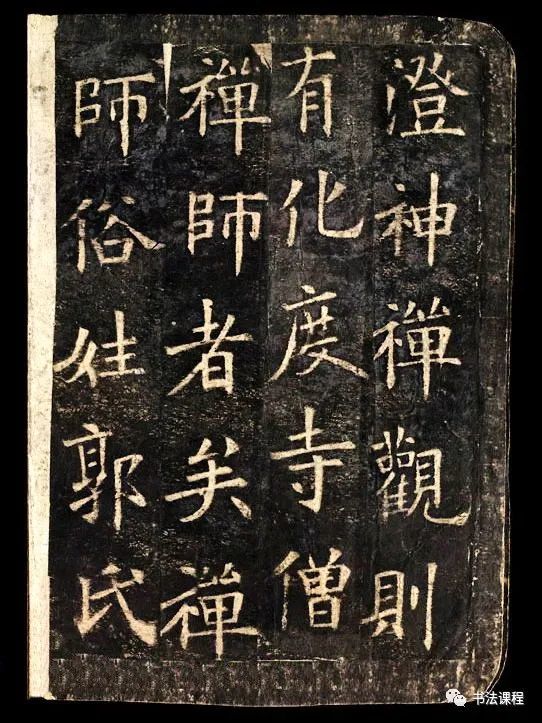 澄神禪觀則
有化度寺僧
禪師者矣禪
師俗姓郭氏
书法课程